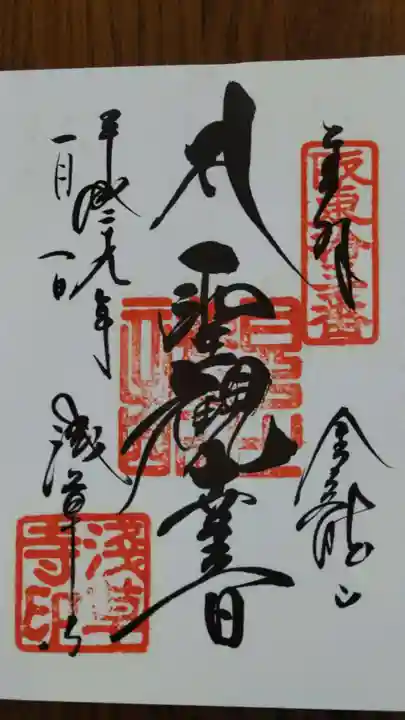 奉拝
坂東拾三番
金龍山
聖観世音
平成二十九年
一月一日
浅草寺
淺草寺印